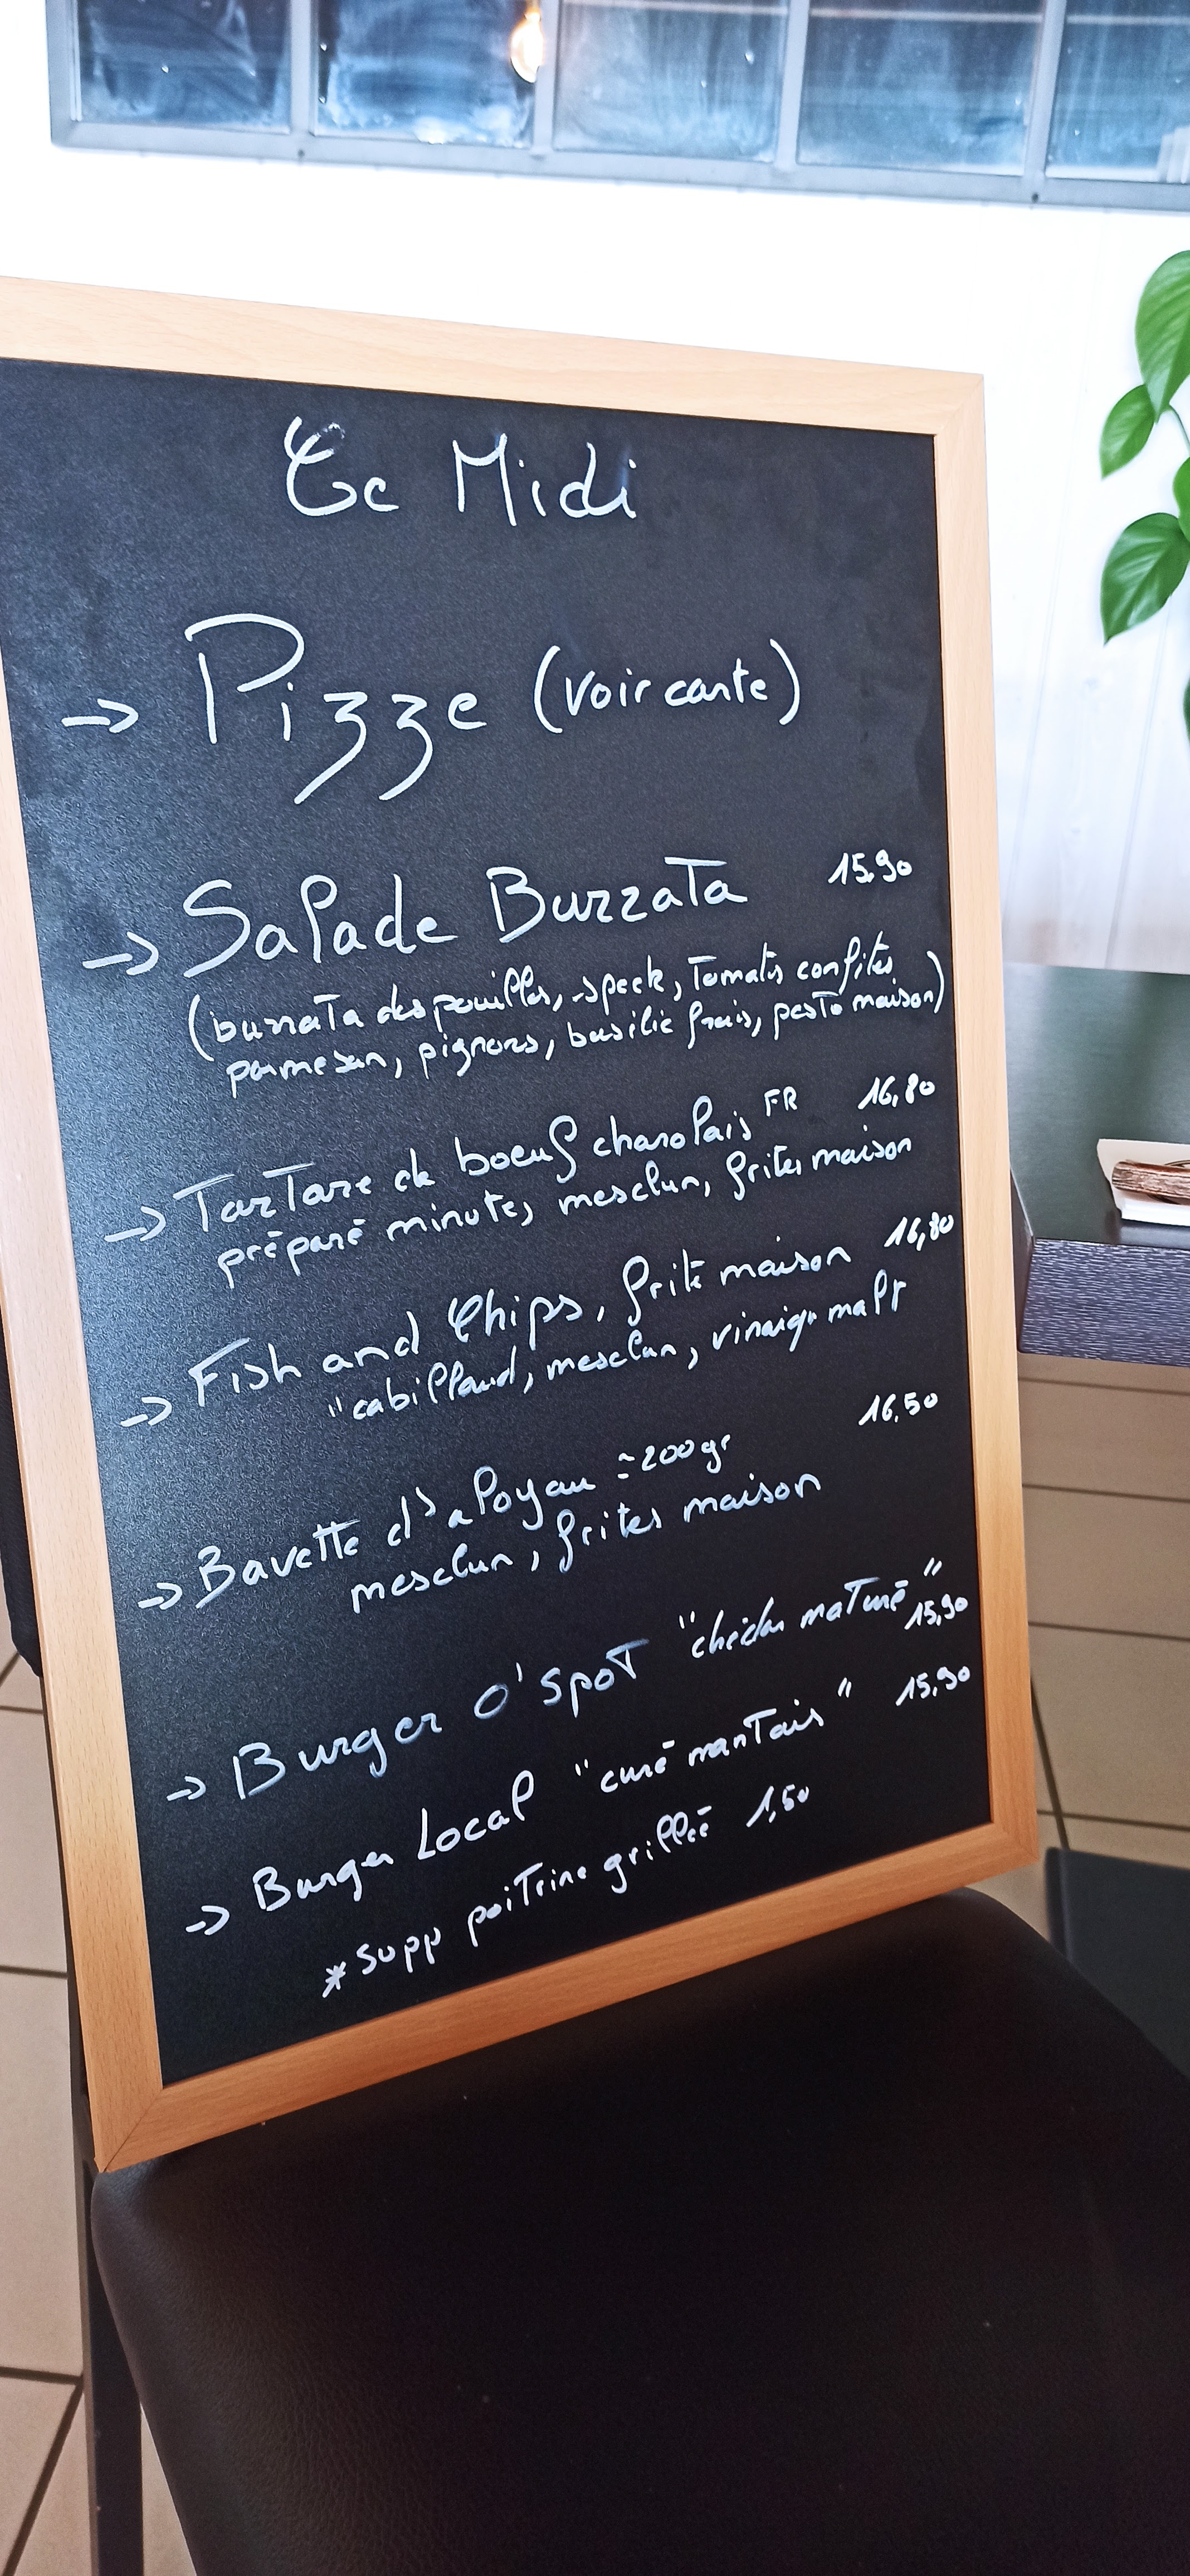 Ce Midi
→ Pizze (voir carte)
→ Salade Burrata 15,90
(burrata des pouilles, speck, Tomates confites
parmesan, pignons, basilic frais, pesto maison)
→ Tartare de boeuf charolais FR 16,80
préparé minute, mesclun, frites maison
→ Fish and Chips, frite maison 16,80
"cabillaud, mesclun, vinaigre malt
→ Bavette d'aloyau ≃200gr 16,50
mesclun, frites maison
→ Burger O'Spot "chedar maturé" 15,90
→ Burger Local "curé nantais" 15,90
*supp poitrine grillée 1,50